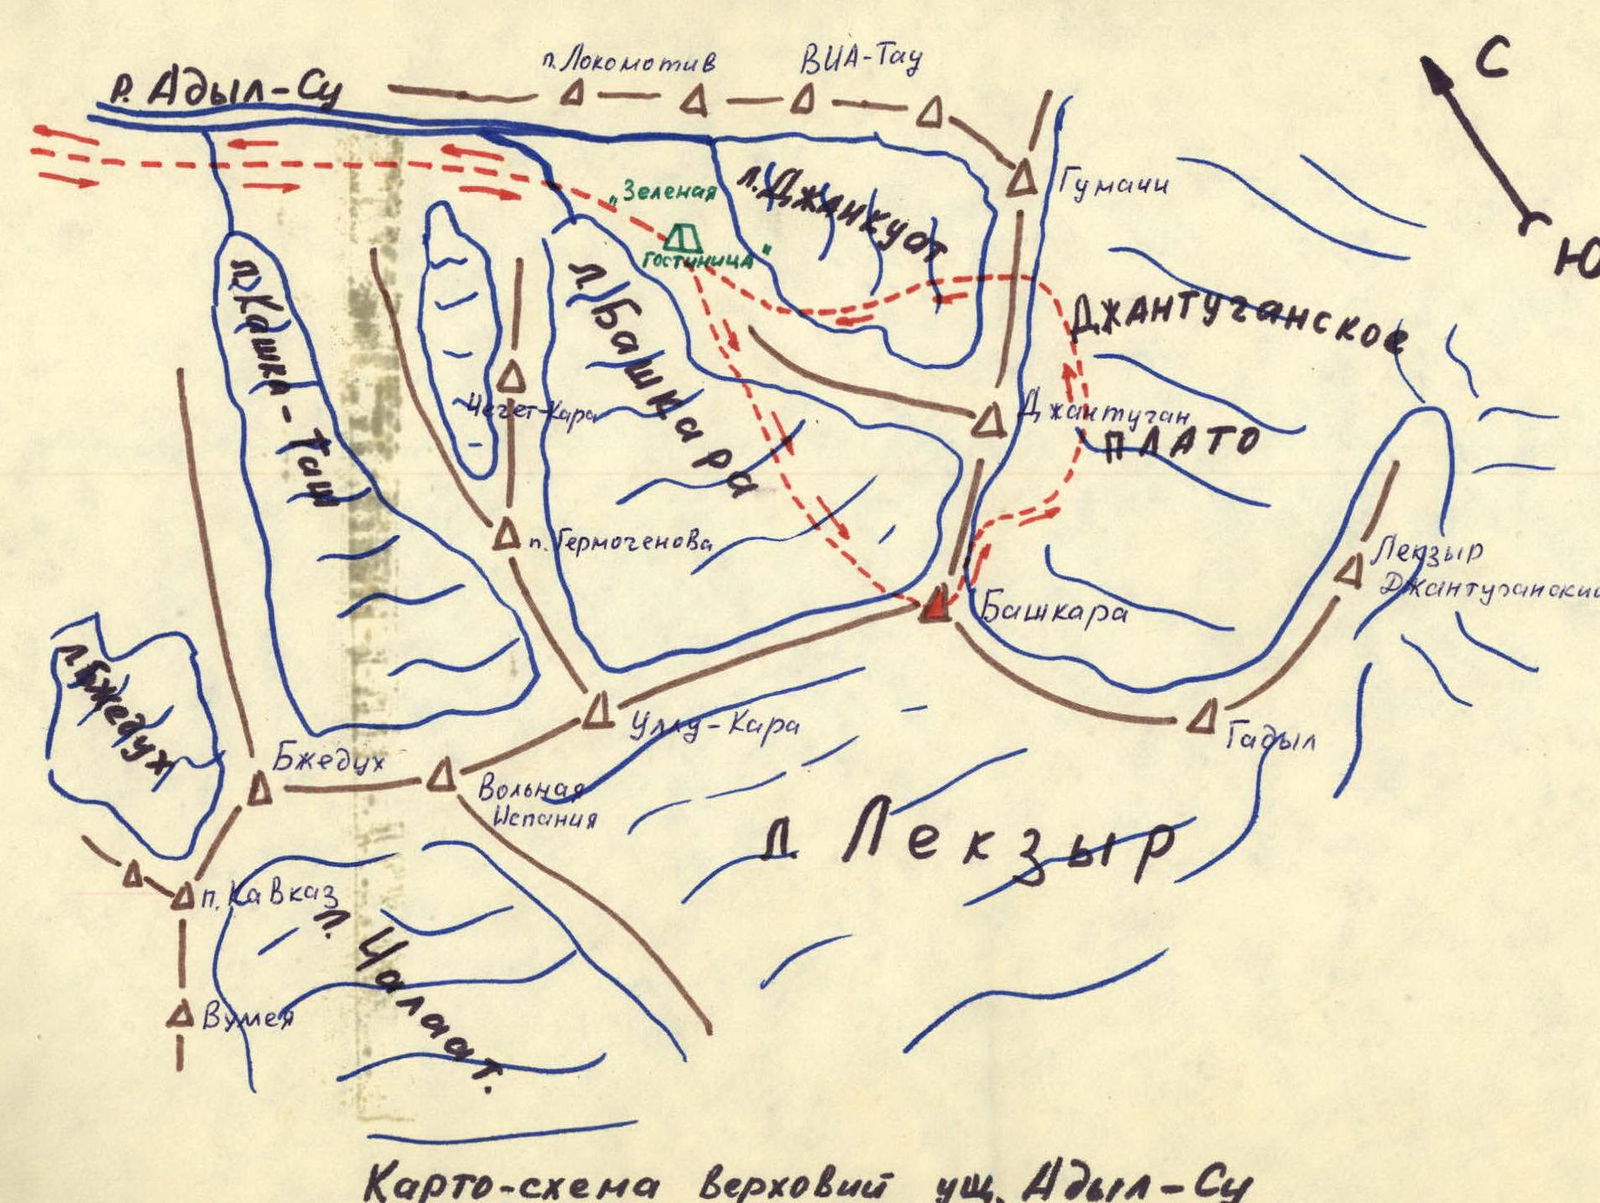 п. Локомотив
ВИА-Тау
С
р. Адыл-Су
Гумачи
„Зеленая
гостиница"
л. Джанкуат
Ю
л. Кашка-Таш
л. Башкара
Джантуганское
Чегет-Кара
Джантуган
плато
п. Гермогенова
Лекзыр
Джантуганский
Башкара
л. Бжедух
Уллу-Кара
Гадыл
Бжедух
Вольная
Испания
л. Лекзыр
п. Кавказ
л. Цалаат.
Вумея
Карто-схема верховий ущ. Адыл-Су